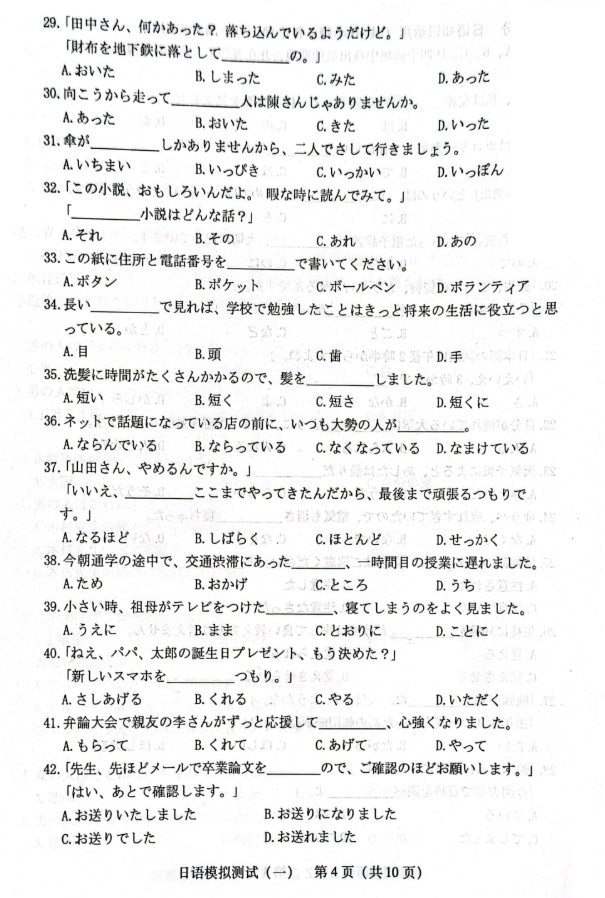 29.「田中さん、何かあった？ 落ち込んでいるようだけど。」
「財布を地下鉄に落として________の。」
A.おいた B.しまった C.みた D.あった
30.向こうから走って________人は陳さんじゃありませんか。
A.あった B.おいた C.きた D.いった
31.傘が________しかありませんから、二人でさして行きましょう。
A.いちまい B.いっぴき C.いっかい D.いっぽん
32.「この小説、おもしろいんだよ。 暇な時に読んでみて。」
「________小説はどんな話？」
A.それ B.その C.あれ D.あの
33.この紙に住所と電話番号を________で書いてください。
A.ボタン B.ポケット C.ボールペン D.ボランティア
34.長い________で見れば、学校で勉強したことはきっと将来の生活に役立つと思
っている。
A.目 B.頭 C.歯 D.手
35.洗髪に時間がたくさんかかるので、髪を________しました。
A.短い B.短く C.短さ D.短くに
36.ネットで話題になっている店の前に、いつも大勢の人が________。
A.ならんでいる B.ならっている C.なくなっている D.なまけている
37.「山田さん、やめるんですか。」
「いいえ、________ここまでやってきたんだから、最後まで頑張るつもりで
す。」
A.なるほど B.しばらく C.ほとんど D.せっかく
38.今朝通学の途中で、交通渋滞にあった________、一時間目の授業に遅れました。
A.ため B.おかげ C.ところ D.うち
39.小さい時、祖母がテレビをつけた________、寝てしまうのをよく見ました。
A.うえに B.まま C.とおりに D.ことに
40.「ねえ、パパ、太郎の誕生日プレゼント、もう決めた？」
「新しいスマホを________つもり。」
A.さしあげる B.くれる C.やる D.いただく
41.弁論大会で親友の李さんがずっと応援して________、心強くなりました。
A.もらって B.くれて C.あげて D.やって
42.「先生、先ほどメールで卒業論文を________ので、ご確認のほどお願いします。」
「はい、あとで確認します。」
A.お送りいたしました B.お送りになりました
C.お送りでした D.お送れました
日语模拟测试（一） 第 4 页（共 10 页）